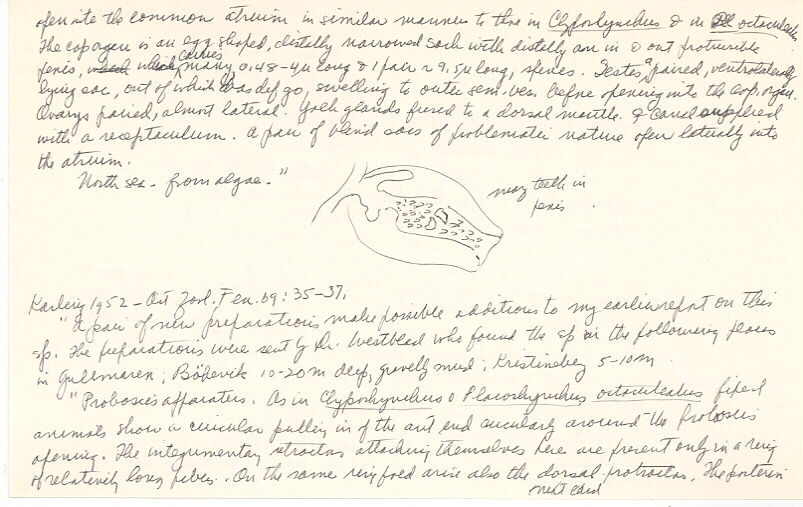 open into the common atrium in similar manner to this in Clyporhynchus & in Pl octoculeatus
The cop organ is an egg shaped, distally narrowed sack with distally an in & out protrusible
penis, which carries many 0.48-4µ long & 1 pair ~ 9.5µ long, spines. Testes paired, ventrolaterally
lying sac, out of which vas def go, swelling to outer sem. ves. before opening into the cop. organ.
Ovarys paired, almost lateral. Yolk glands fused to a dorsal mantle. ♀ canal supplied
with a receptaculum. A pair of blind sacs of problematic nature open laterally into
the atrium.
North sea - from algae."
many teeth in
penis
Karling 1952 - Act Zool. Fen. 69: 35-37.
"A pair of new preparations make possible additions to my earlier report on this
sp. The preparations were sent by Dr. Westblad who found the sp in the following places
in Gullmaren; Bökevik 10-20m deep, gravelly mud; Kristineberg 5-10m
"Proboscis apparatus. As in Clyporhynchus & Placorhynchus octoculeatus fixed
animals show a circular pulling in of the ant end circularly around the proboscis
opening. The integumentary retractors attaching themselves here are present only in a ring
of relatively long fibers. On the same ring fold arise also the dorsal protractors. The posterior
next card